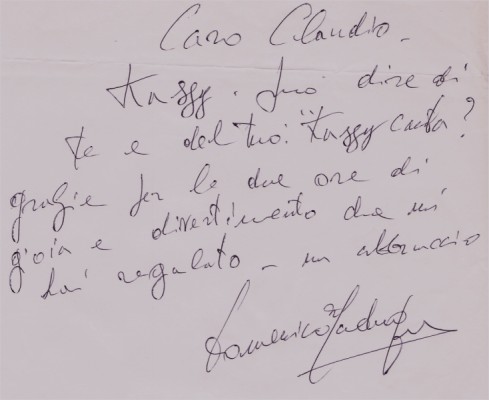 Caro Claudio -
può dire di
te e del tuo: canta?
grazie per le due ore di
gioia e divertimento che mi
hai regalato - un abbraccio
Domenico